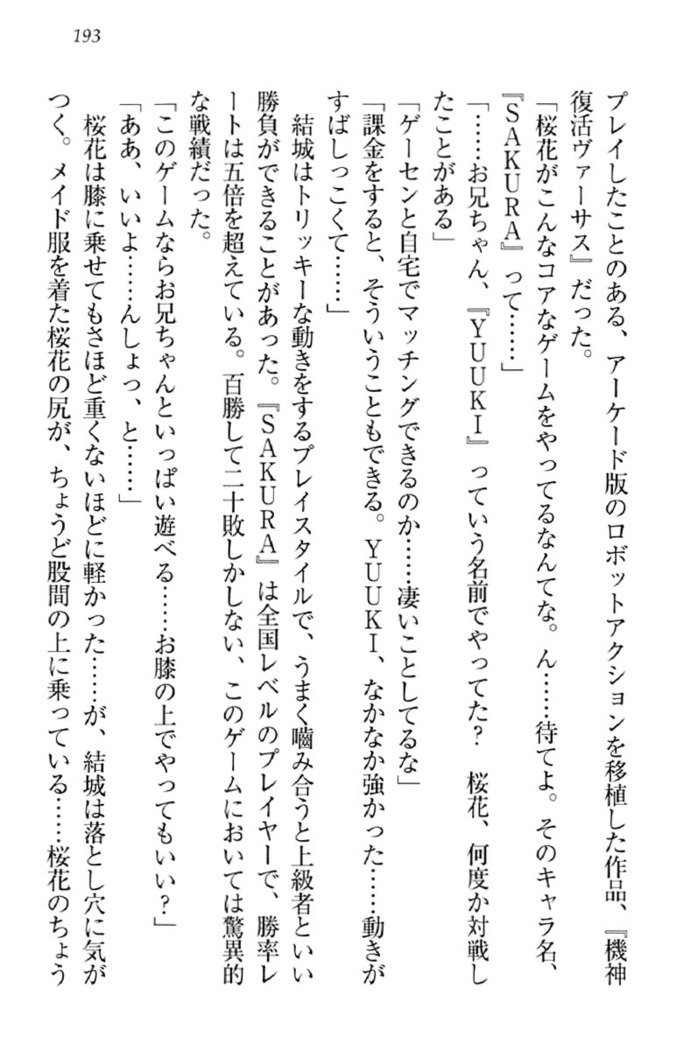 193
プレイしたことのある、アーケード版のロボットアクションを移植した作品、『機神
復活ヴァーサス』だった。
「桜花がこんなコアなゲームをやってるなんてな。ん……待てよ。そのキャラ名、
『SAKURA』って……」
「……お兄ちゃん、『YUUKI』っていう名前でやってた？　桜花、何度か対戦し
たことがある」
「ゲーセンと自宅でマッチングできるのか……凄いことしてるな」
「課金をすると、そういうこともできる。YUUKI、なかなか強かった……動きが
すばしっこくて……」
　結城はトリッキーな動きをするプレイスタイルで、うまく嚙み合うと上級者といい
勝負ができることがあった。『SAKURA』は全国レベルのプレイヤーで、勝率レ
ートは五倍を超えている。百勝して二十敗しかしない、このゲームにおいては驚異的
な戦績だった。
「このゲームならお兄ちゃんといっぱい遊べる……お膝の上でやってもいい？」
「ああ、いいよ……んしょっ、と……」
　桜花は膝に乗せてもさほど重くないほどに軽かった……が、結城は落とし穴に気が
つく。メイド服を着た桜花の尻が、ちょうど股間の上に乗っている……桜花のちょう